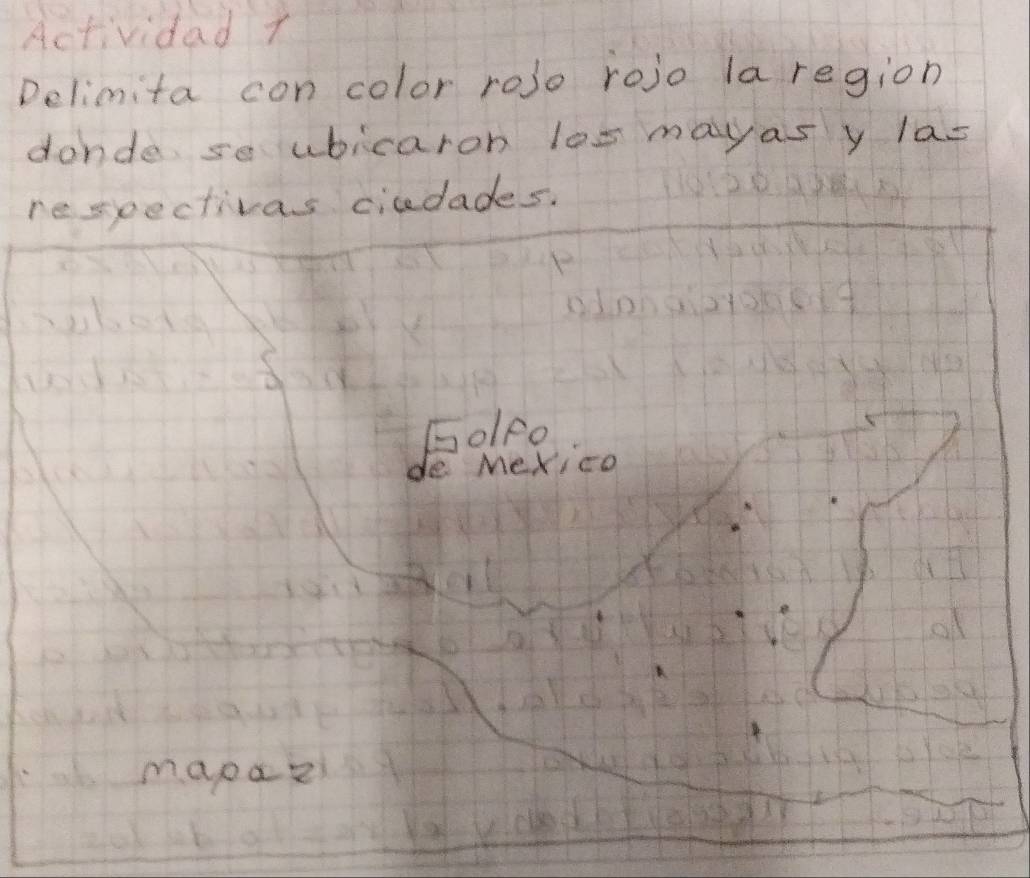 Actividad 1
Delimita con color rojo rojo la region
donde se ubicaron los mayas y las
respectivas ciudades.
Golfo
de Mexico
mapa 2